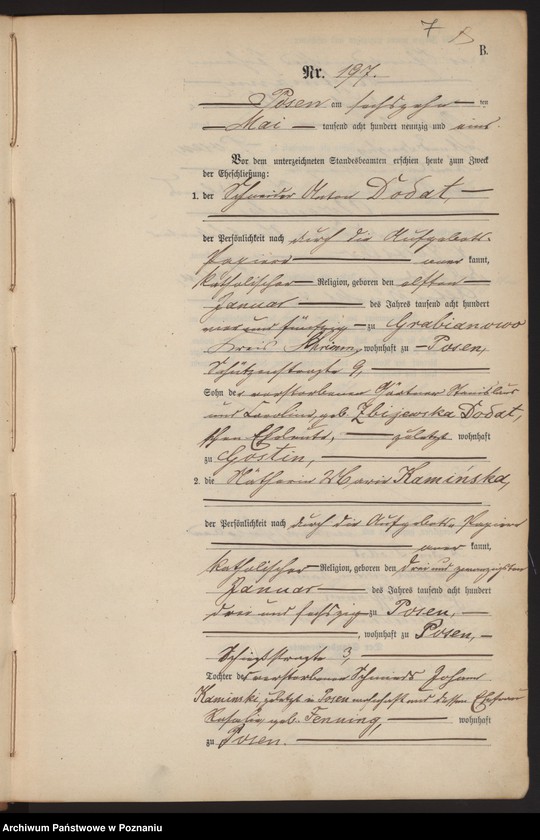 7
B.
Nr. 197.
Posen am sechszehn ten
Mai tausend acht hundert neunzig und eins.
Vor dem unterzeichneten Standesbeamten erschien heute zum Zweck
der Eheschließung:
1. der Schneider Anton Dodat,
der Persönlichkeit nach durch die Aufgebots-
Papiere aner kannt,
katholischer Religion, geboren den elften
Januar des Jahres tausend acht hundert
und fünfzig zu Grabianowo
Kreis Schrimm, wohnhaft zu Posen,
Schützenstraße 9,
Sohn des verstorbenen Gärtner Stanislaus
und Karoline geb. Zbijewska Dodat,
schen Eheleute, zuletzt wohnhaft
zu Gostin,
2. die Nätherin Maria Kamińska,
der Persönlichkeit nach durch die Aufgebots-Papiere
aner kannt,
katholischer Religion, geboren den drei und zwanzigsten
Januar des Jahres tausend acht hundert
drei und sechszig zu Posen,
, wohnhaft zu Posen,
Schießstraße 3,
Tochter des verstorbenen Schmieds Johann
Kaminski, zuletzt in Posen wohnhaft und dessen Ehefrau
Rosalie geb. Fenning, wohnhaft
zu Posen.
Archiwum Państwowe w Poznaniu